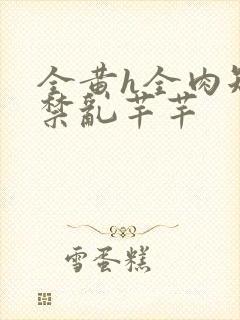 全黄h全肉短
禁乱芊芊
雪蛋糕